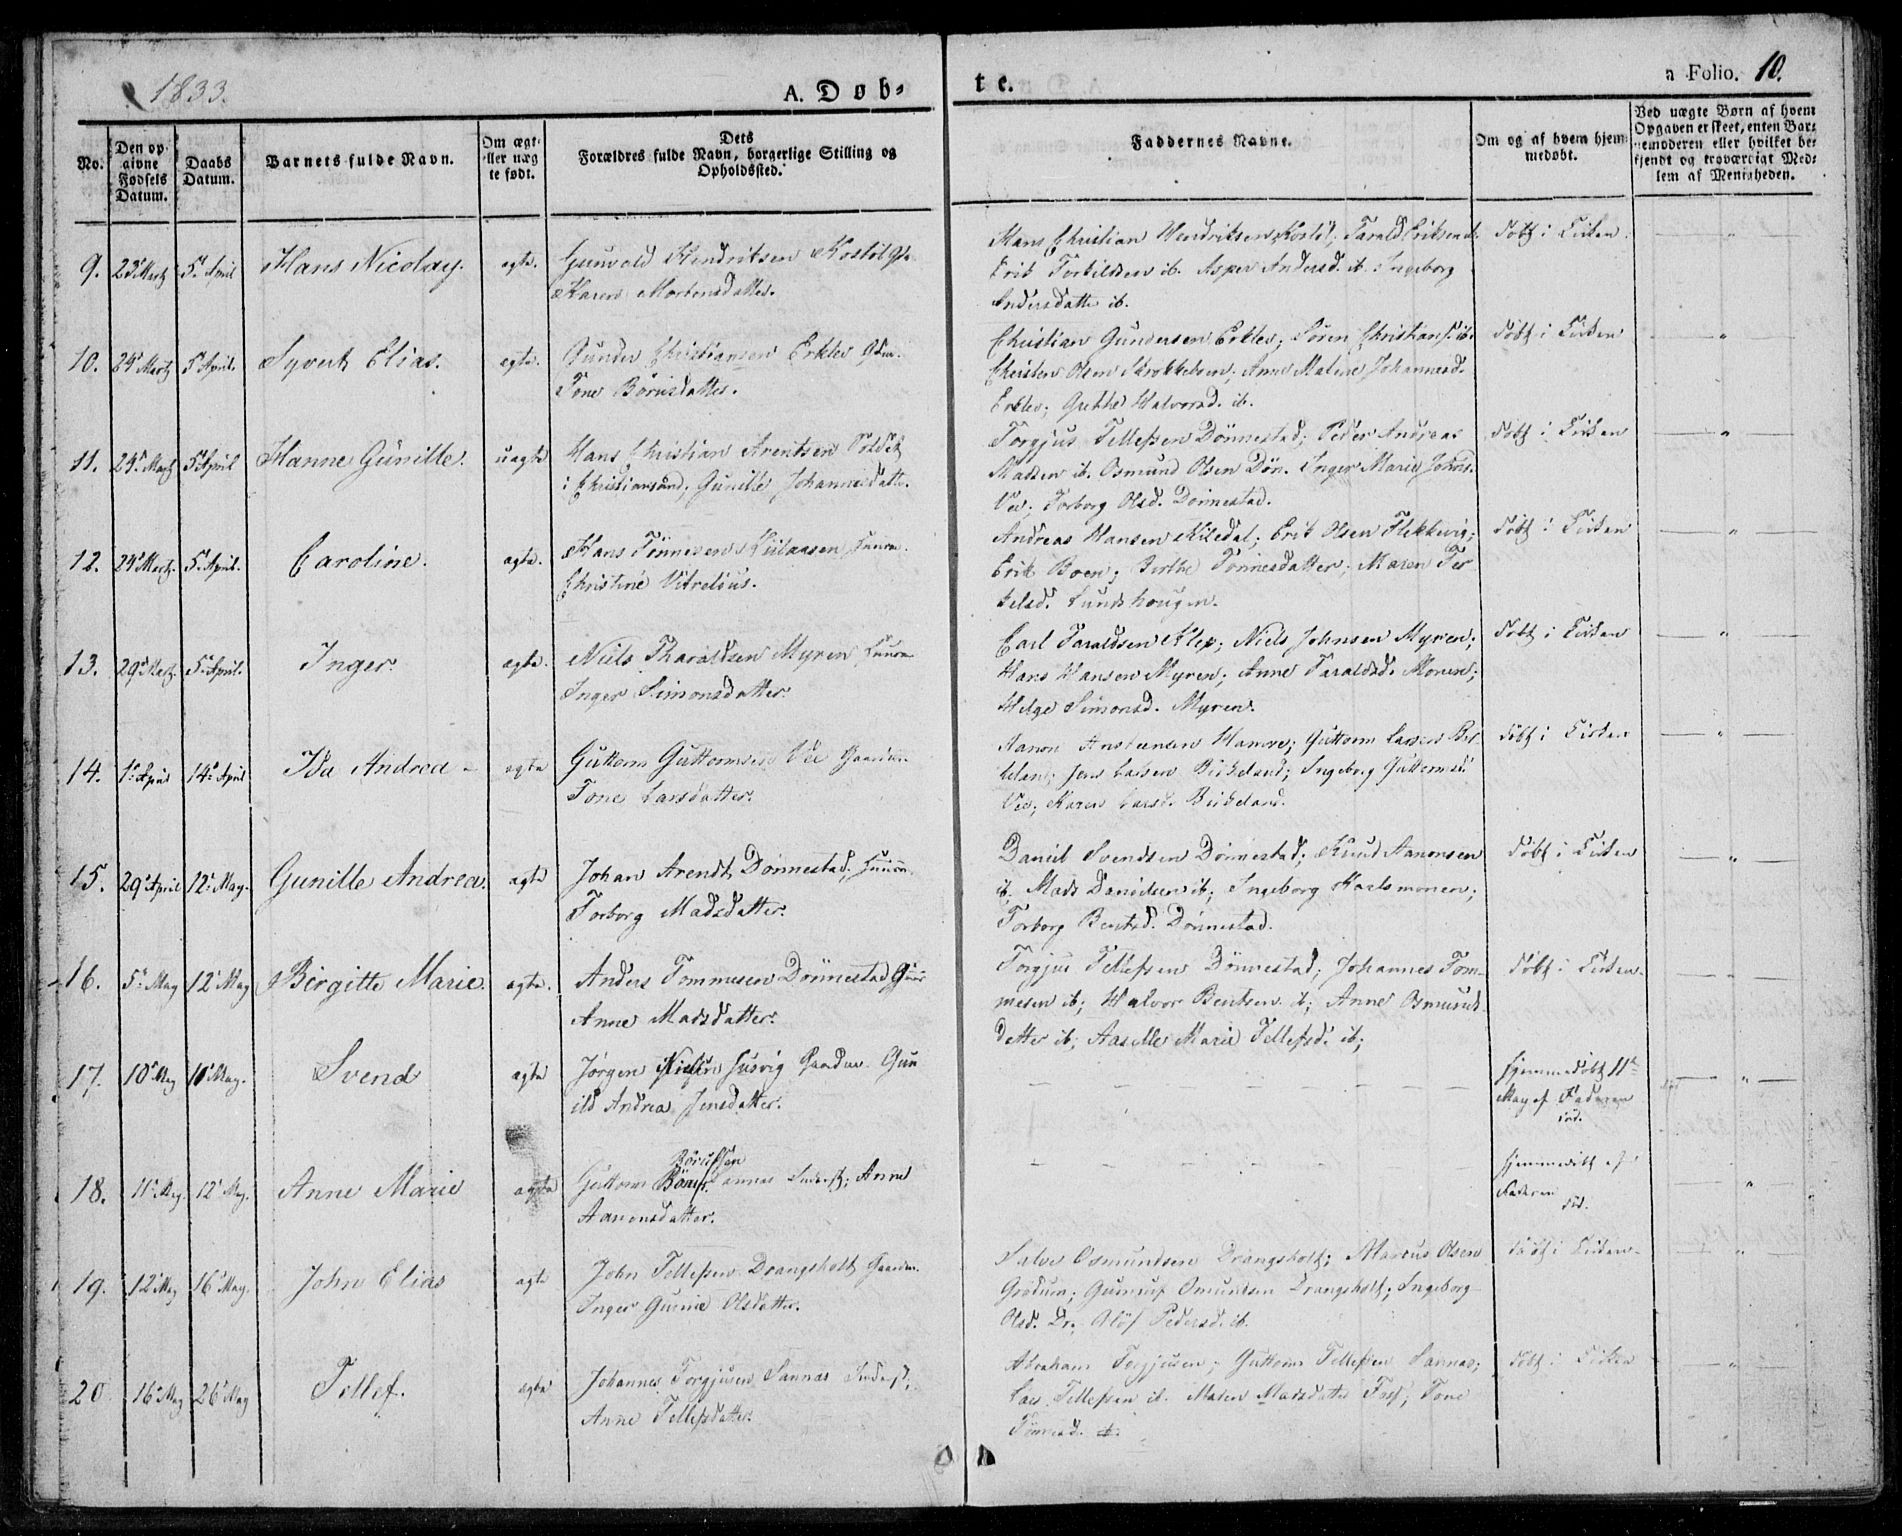 1833.
A. Døb-
te.
a Folio. 10.
No.
Den op-
givne
Fødsels
Datum.
Daabs
Datum.
Barnets fulde Navn.
Om ægt-
eller uæg
te født.
Dets
Forældres fulde Navn, borgerlige Stilling og
Opholdssted.
Faddernes Navne.
Om og af hvem hjem-
medøbt.
Ved uægte Børn af hvem
Opgaven er skeet, enten Bar-
nemoderen eller hvilket be-
kjendt og troværdigt Med-
lem af Menigheden.
9. 23 Martz 5 April Hans Nicolay. ægte.
Gunvald Hendriksen Kostøl
Karen Mortensdatter.
Hans Christian Hendriksen Kostøl; Tarald Eriksen
Erik Torkildsen ib. Asper Andersd. ib. Ingeborg
Andersdatter ib.
døbt i Kirken
10. 24 Martz 5 April. Syvert Elias. ægte.
Gunder Christiansen Erklev
Tone Børrisdatter.
Christian Gundersen Erklev; Sören Christians. ib.
Christen Olsen; Anne Malene Johannesd.
Erklev; Grethe Halvorsd. ib.
døbt i Kirken
11. 24 Martz 5 April Hanne Gunille. uægte
Hans Christian Arentsen Soldat
i Christiansand, Gunille Johannesdatter.
Torgjus Tellefsen Dönnestad; Peder Andreas
Madsen ib. Osmund Olsen Dön. Inger Marie Johns.
Vee; Torborg Olsd. Dönnestad.
døbt i Kirken
12. 24 Martz. 5 April. Caroline. ægte.
Hans Tönnesen
Christine Vitrelius.
Andreas Hansen Kiledal; Erik Olsen Flekkerøe;
Erik Boen; Birthe Tönnesdatter; Maren Ter
kelsd. Lundshougen.
døbt i Kirken
13. 29 Martz. 5 April. Inger. ægte.
Niels Tharaldsen Myren
Inger Simonsdatter
Carl Taraldsen Klep; Niels Johnsen Myren;
Hans Hansen Myren; Anne Taraldsd. Monen;
Helge Simonsd. Myren.
døbt i Kirken
14. 1 April 14 April Ida Andrea - ægte
Guttorm Guttormsen Vee Gaardm.
Tone Larsdatter.
Aanon Anstensen Hamre; Guttorm Larsen Bir
keland; Jens Larsen Birkeland; Ingeborg Guttormsd.
Vee; Karen Larsd. Birkeland.
døbt i Kirken
15. 29 April 12 May. Gunille Andrea. ægte
Johan Arendt Dönnestad,
Torborg Madsdatter.
Daniel Svendsen Dönnestad; Knud Aanonsen
ib. Mads Danielsen ib; Ingeborg Haalsmonen;
Torborg Bentsd. Dönnestad.
døbt i Kirken
16. 5 May 12 May Birgitte Marie. ægte.
Anders Tommesen Dönnestad
Anne Madsdatter.
Torgjus Tellefsen Dönnestad; Johannes Tom-
mesen ib; Halvor Bentsen ib; Anne Osmunds
datter ib; Aaselle Marie Tellefsd. ib;
døbt i Kirken
17. 10 May 10 May. Svend ægte
Jörgen Nielsen Justvig Gaardm. Gun
ild Andrea Jensdatter.
hjemmedøbt 11
May af Faderen
död.
18. 11 May. 12 May. Anne Marie ægte
Börufsen
Guttorm Sannes Inderst; Anne
Aanonsdatter.
hjemmedøbt af
Faderen
död.
19. 12 May 16 May. John Elias ægte
John Tellefsen Drangsholt Gaardm.
Inger Gurine Olsdatter.
Salve Osmundsen Drangsholt; Marcus Olsen
Grödum; Gunuf Omundsen Drangsholt; Ingeborg
Olsd. Dr., Alöf Pedersd. ib.
døbt i Kirken
20 16 May 26 May Tellef. ægte
Johannes Torgjusen Sannes Inderst;
Anne Tellefsdatter.
Abraham Torgjusen; Guttorm Tellefsen Sannes;
Lars Tellefsen ib. Maren Madsdatter; Tone
Tönnesd. ib.
døbt i Kirken